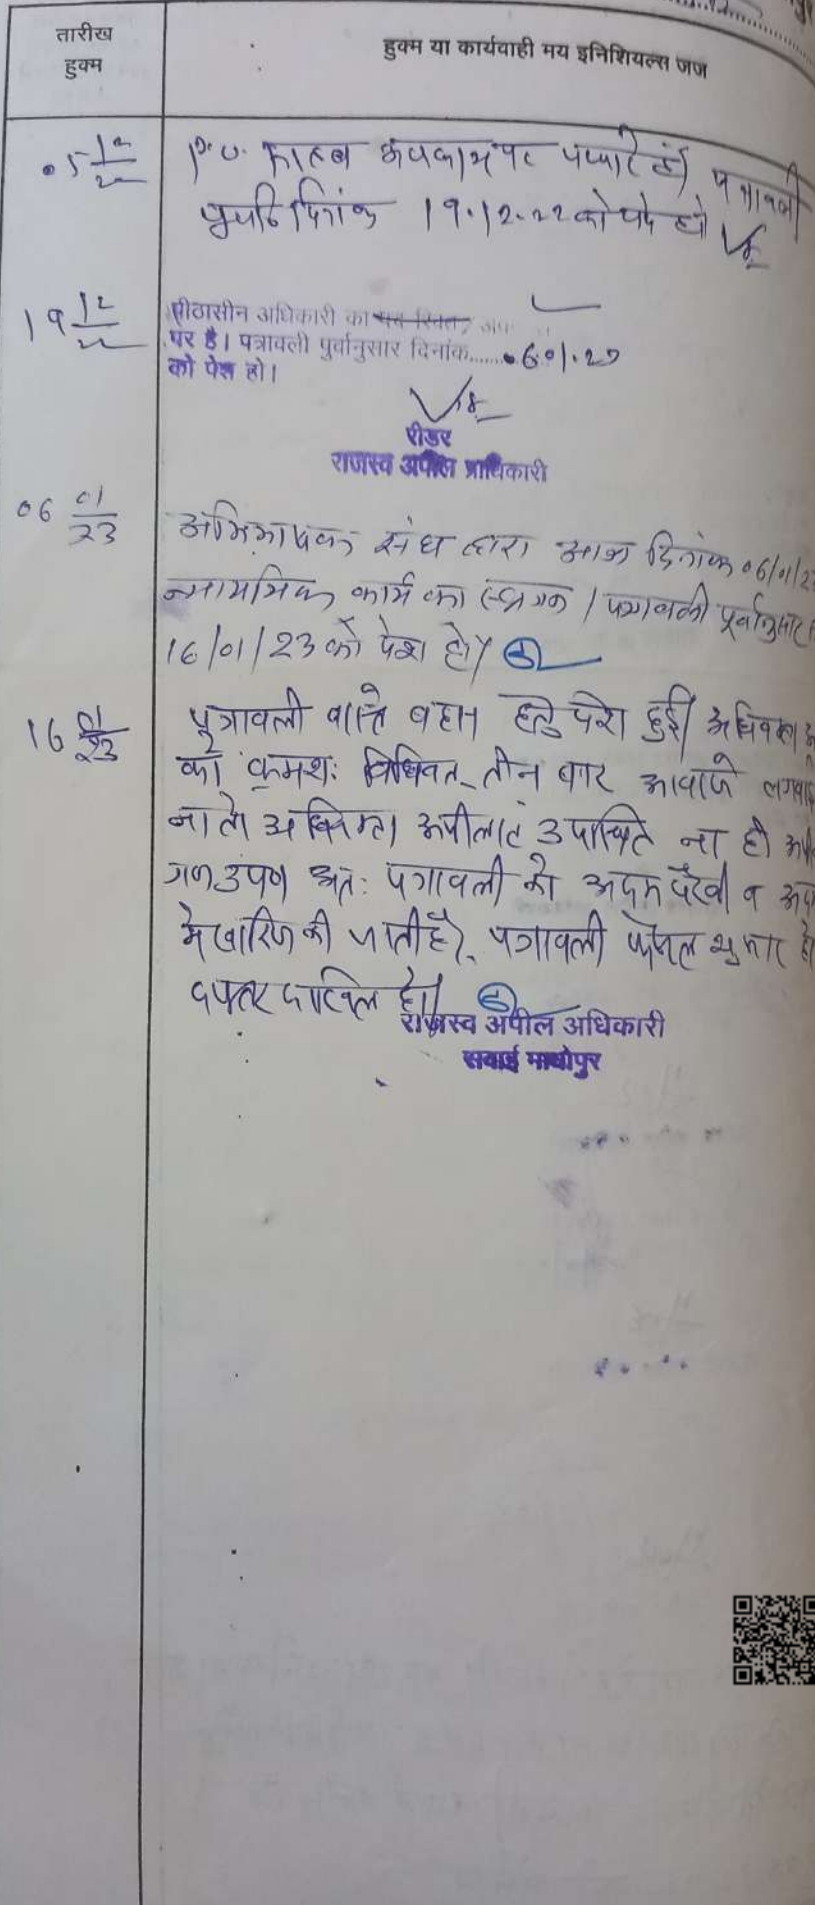 तारीख
हुक्म
हुक्म या कार्यवाही मय इनिशियल्स जज
05 12/22
P.O. अवकाश पर पधारे हैं। पत्रावली
दिनांक 19.12.22 को पेश हो
19 12/22
पीठासीन अधिकारी का
पर है। पत्रावली पुर्वानुसार दिनांक.......06.01.23
को पेश हो।
रीडर
राजस्व अपील प्राधिकारी
06 01/23
अभिभाषक संघ द्वारा आज दिनांक 06/01/23
न्यायिक कार्य का स्थगन / पत्रावली पूर्वानुसार
16/01/23 को पेश हो।
16 01/23
पत्रावली वास्ते बहस हेतु पेश हुई।
को क्रमशः विधिवत तीन बार आवाजे लगवाई
अपीलांट उपस्थित ना ही
अतः पत्रावली को अदम पैरवी व
मे खारिज की जाती है। पत्रावली फैसल शुमार हो
दफ्तर दाखिल हो।
राजस्व अपील अधिकारी
सवाई माधोपुर